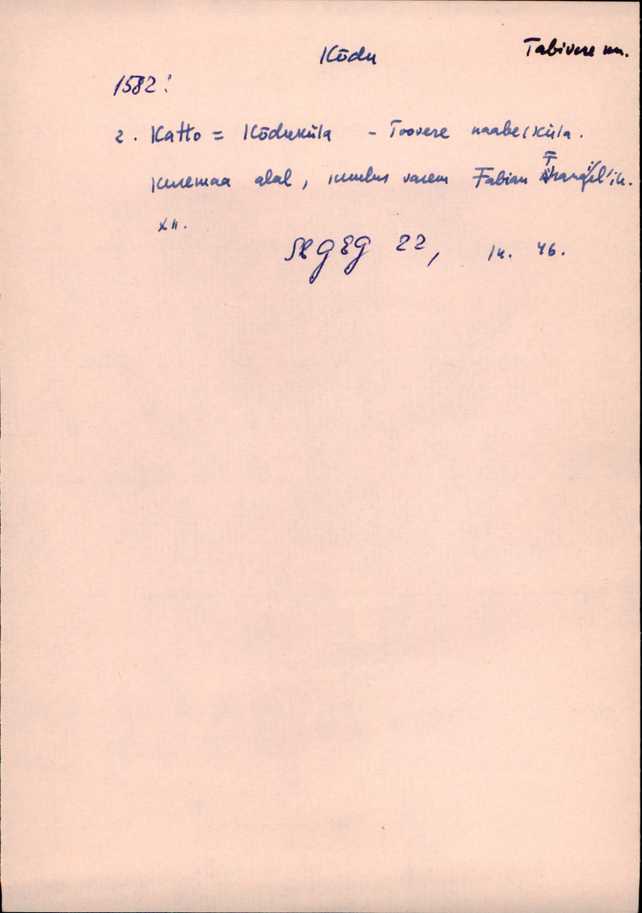 Kõdu
Tabivere
1582:
2. Katto = Kõduküla - Toovere naaberküla.
Kuremaa alal, kuulus varem Fabian
SbGEG 22, lk. 46.